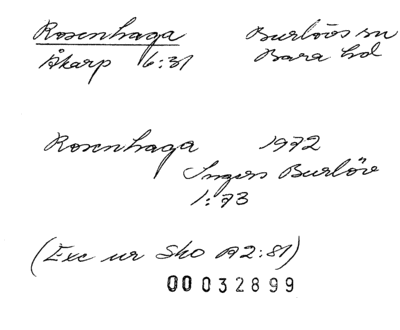 Rosenhaga Burlövs sn
Åkarp 6:31 Bara hd
Rosenhaga 1972
Ingers Burlöv
1:73
(Exc ur Sko A2:81)
00032899